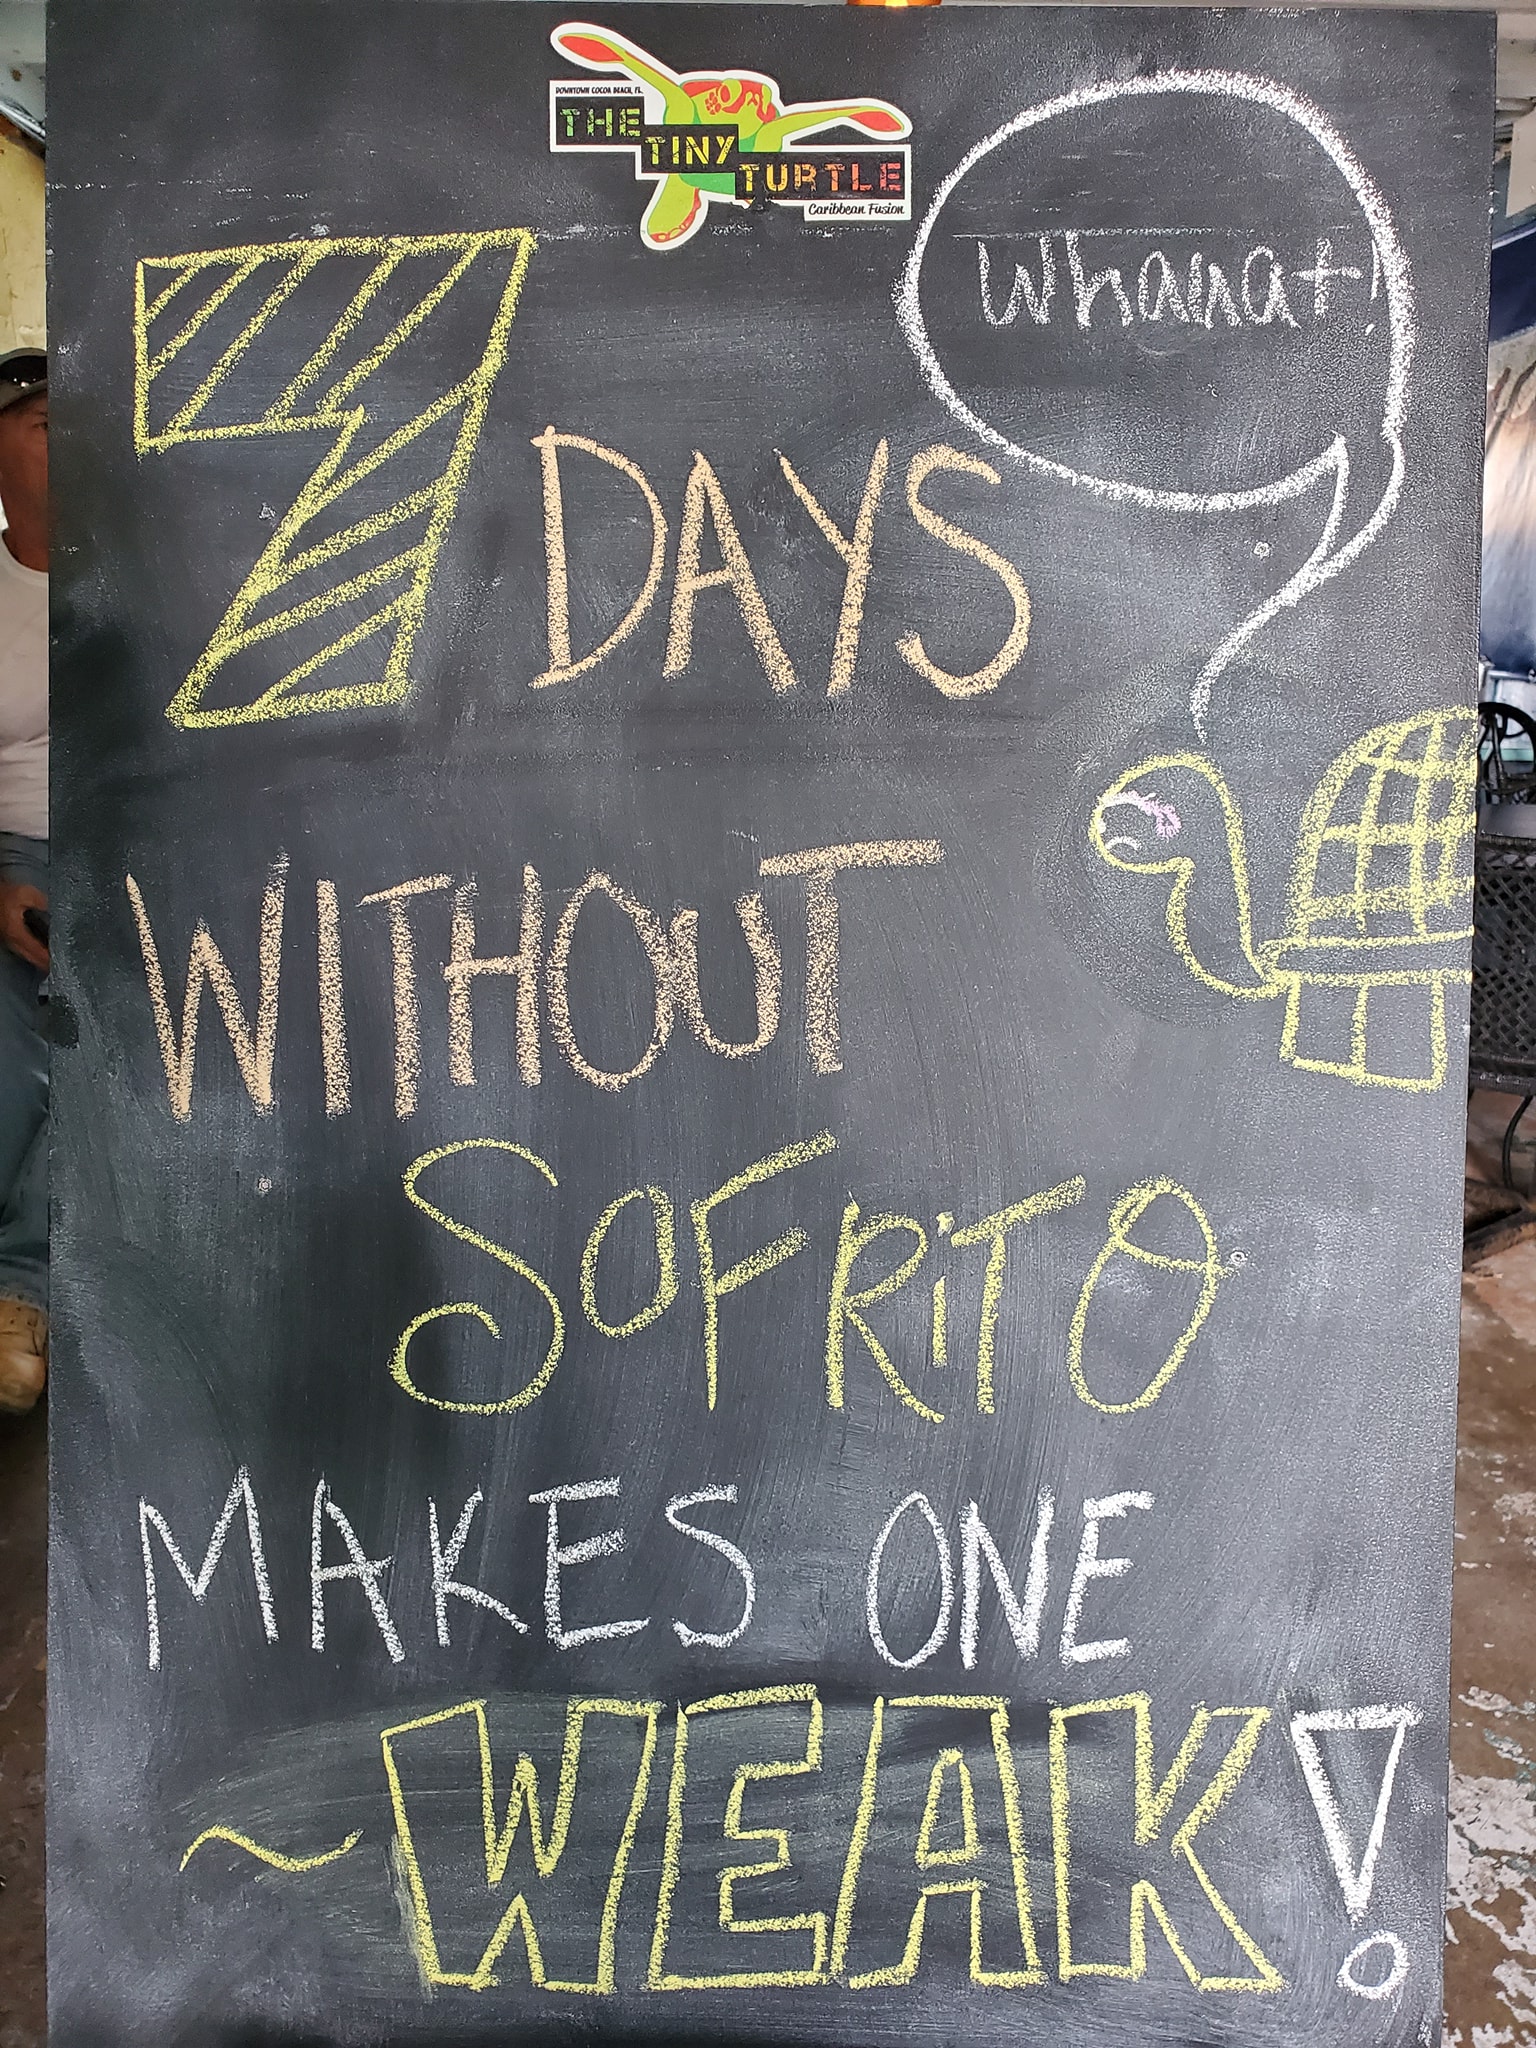 DOWNTOWN COCOA BEACH, FL.
THE
TINY
TURTLE
Caribbean Fusion
Whaaat!
7 DAYS
WITHOUT
SOFRiTO
MAKES ONE
~WEAK!